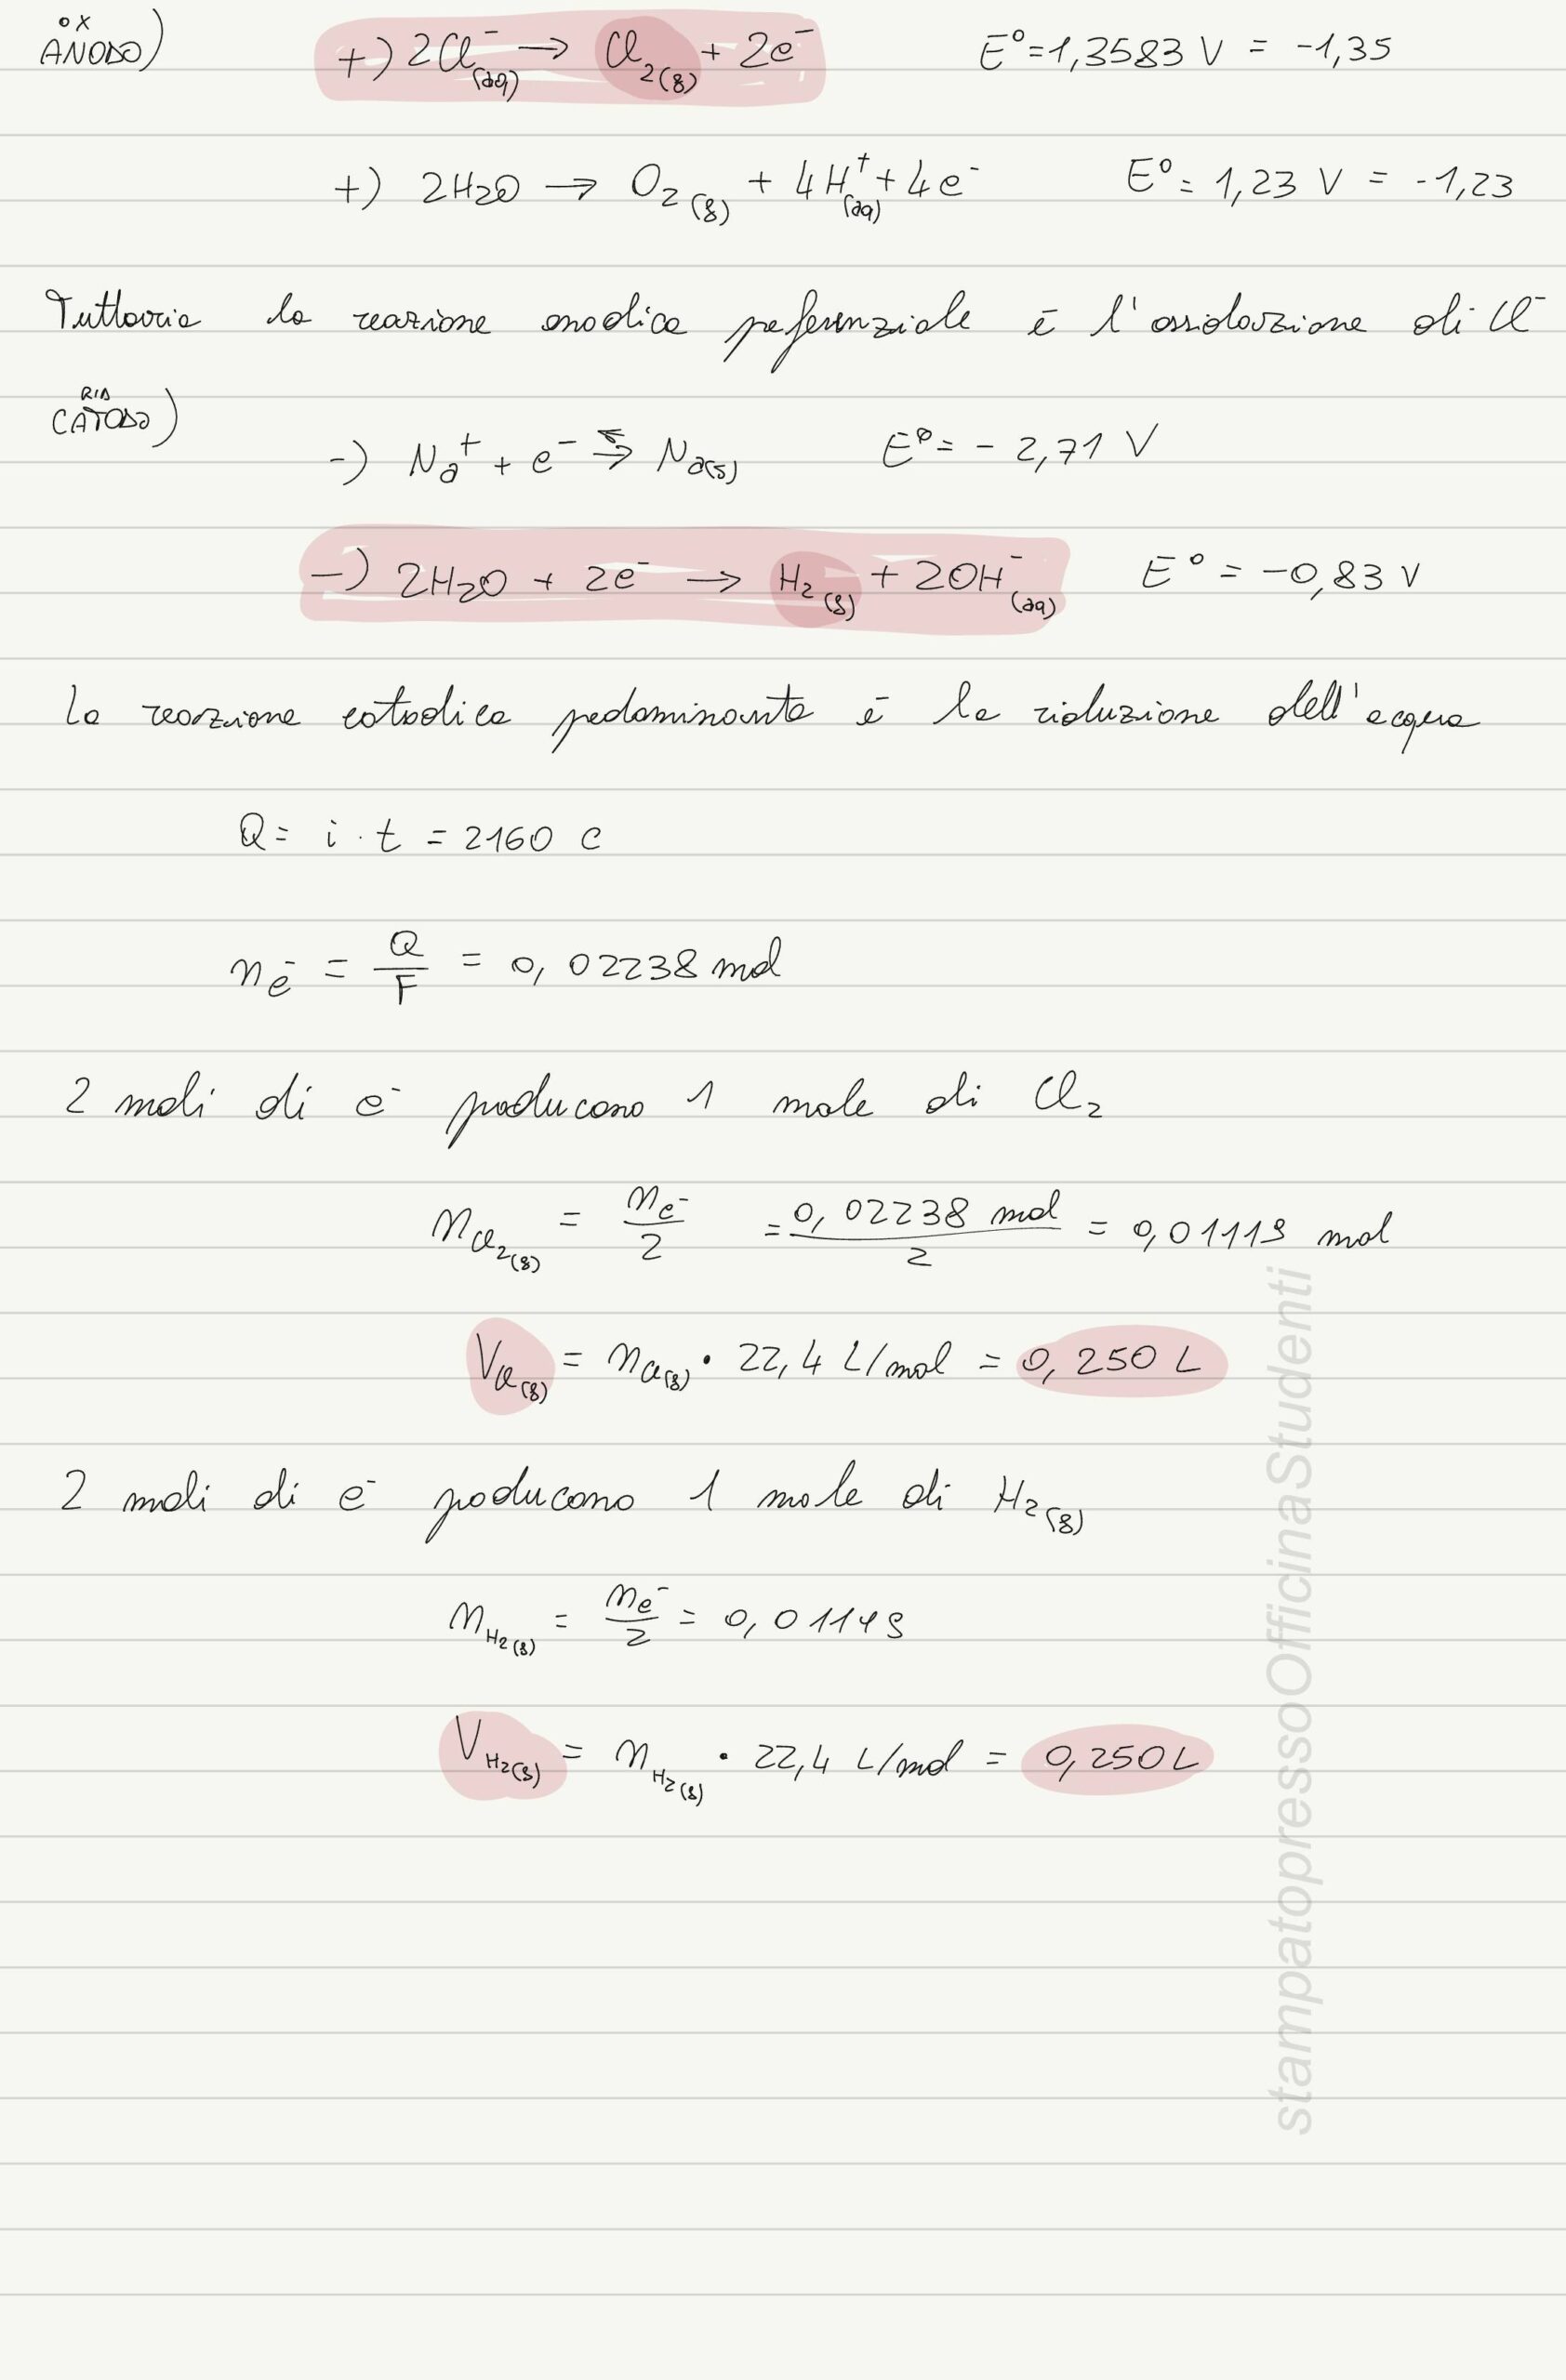 OX
ANODO) +) 2Cl⁻(aq) → Cl₂(g) + 2e⁻ E° = 1,3583 V = -1,35
+) 2H₂O → O₂(g) + 4H⁺(aq) + 4e⁻ E° = 1,23 V = -1,23
Tuttavia la reazione anodica peferenziale è l'ossidazione di Cl⁻
RID
CATODO)
-) Na⁺ + e⁻ ⇄ Na(s) E° = - 2,71 V
-) 2H₂O + 2e⁻ → H₂(g) + 2OH⁻(aq) E° = -0,83 V
La reazione catodica pedominante è la riduzione dell'acqua
Q = i · t = 2160 C
nₑ⁻ = Q/F = 0,02238 mol
2 moli di e⁻ producono 1 mole di Cl₂
n Cl₂(g) = nₑ⁻/2 = 0,02238 mol/2 = 0,01119 mol
V Cl(g) = n Cl(g) • 22,4 L/mol = 0,250 L
2 moli di e⁻ producono 1 mole di H₂(g)
n H₂(g) = nₑ⁻/2 = 0,01119
V H₂(g) = n H₂(g) • 22,4 L/mol = 0,250 L
stampatopressoOfficinaStudenti